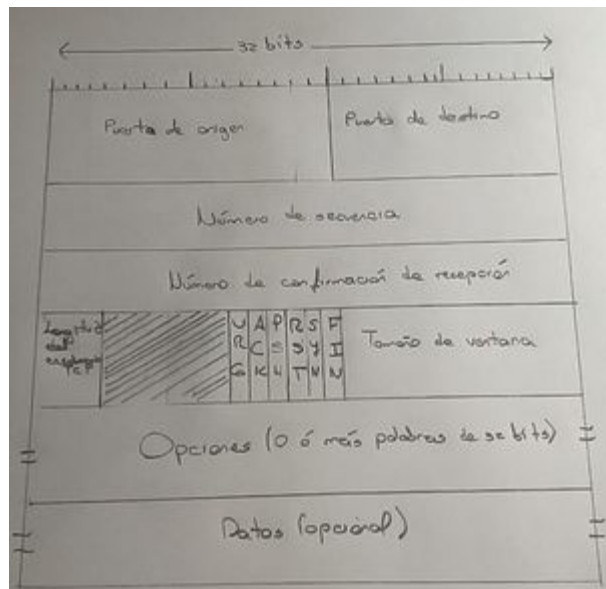 32 bits
Puerto de origen
Puerto de destino
Número de secuencia
Número de confirmación de recepción
Longitud
del
URG
ACK
PSH
RST
SYN
FIN
Tamaño de ventana
Opciones (0 ó más palabras de 32 bits)
Datos (opcional)